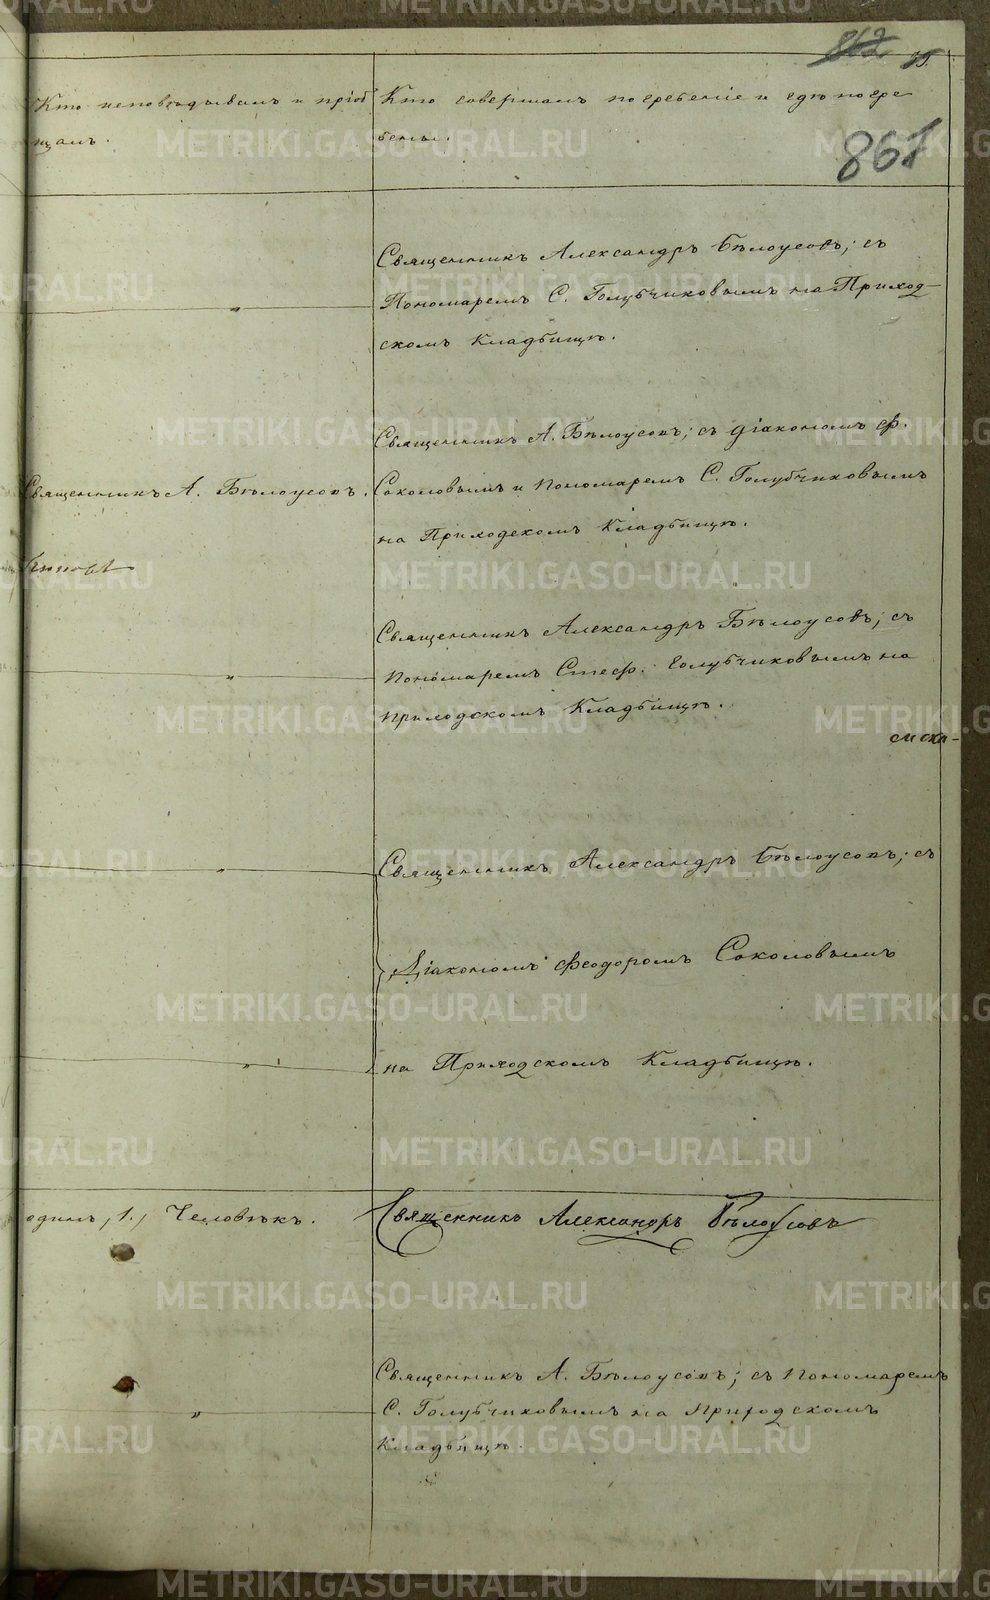 862. 95.
867
Кто исповѣдывалъ и пріоб
щалъ.
Кто совершалъ погребеніе и гдѣ погре
бены.
Священникъ Александръ Бѣлоусовъ; съ
Пономаремъ С. Голубчиковымъ на Приход-
скомъ Кладбищѣ.
Священникъ А. Бѣлоусовъ.
Священникъ А. Бѣлоусовъ; съ Діакономъ Ф.
Соколовымъ и Пономаремъ С. Голубчиковымъ
на Приходскомъ Кладбищѣ.
Священникъ Александръ Бѣлоусовъ; съ
Пономаремъ Стеф. Голубчиковымъ на
Приходскомъ Кладбищѣ.
Священникъ Александръ Бѣлоусовъ; съ
Діакономъ Феодоромъ Соколовымъ
на Приходскомъ Кладбищѣ.
одинъ, 1., Человѣкъ.
Священникъ Александръ Бѣлоусовъ
Священникъ А. Бѣлоусовъ; съ Пономаремъ
С. Голубчиковымъ на Приходскомъ
Кладбищѣ.
METRIKI.GASO-URAL.RU